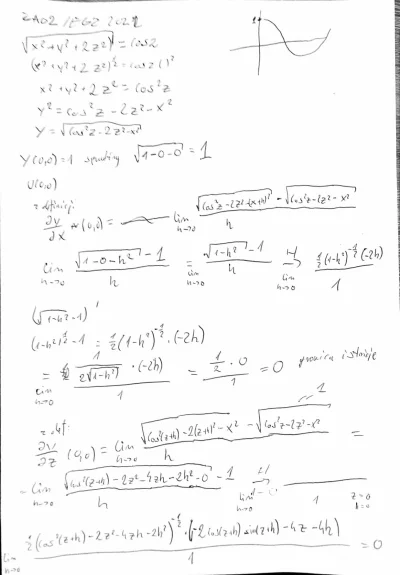 ZAD2 / EGZ 2021
√(x²+y²+2z²) = cos z
(x²+y²+2z²)^½ = cos z ()²
x²+y²+2z² = cos²z
y² = cos²z - 2z² - x²
y = √(cos²z - 2z² - x²)
Y(0,0) = 1 √(1-0-0) = 1
U(0,0)
z definicji
∂y/∂x (0,0) = lim h→0 (√(cos²z - 2z² - (x+h)²) - √(cos²z - 2z² - x²))/h
lim h→0 (√(1-0-h²) - 1)/h = lim h→0 (√(1-h²) - 1)/h =H lim h→0 (½(1-h²)^-½ (-2h))/1
(√(1-h²) - 1)'
(1-h²)^½ - 1 = ½(1-h²)^-½ · (-2h)
= lim h→0 (1/(2√(1-h²)) · (-2h))/1 = (½ · 0)/1 = 0 granica istnieje
z def: 1
∂y/∂z (0,0) = lim h→0 (√(cos²(z+h) - 2(z+h)² - x²) - √(cos²z - 2z² - x²))/h =
= lim h→0 (√(cos²(z+h) - 2z² - 4zh - 2h² - 0) - 1)/h =H lim h→0 /1 z=0
lim h→0 (½(cos²(z+h) - 2z² - 4zh - 2h²)^-½ · (-2cos(z+h) sin(z+h) - 4z - 4h))/1 = 0